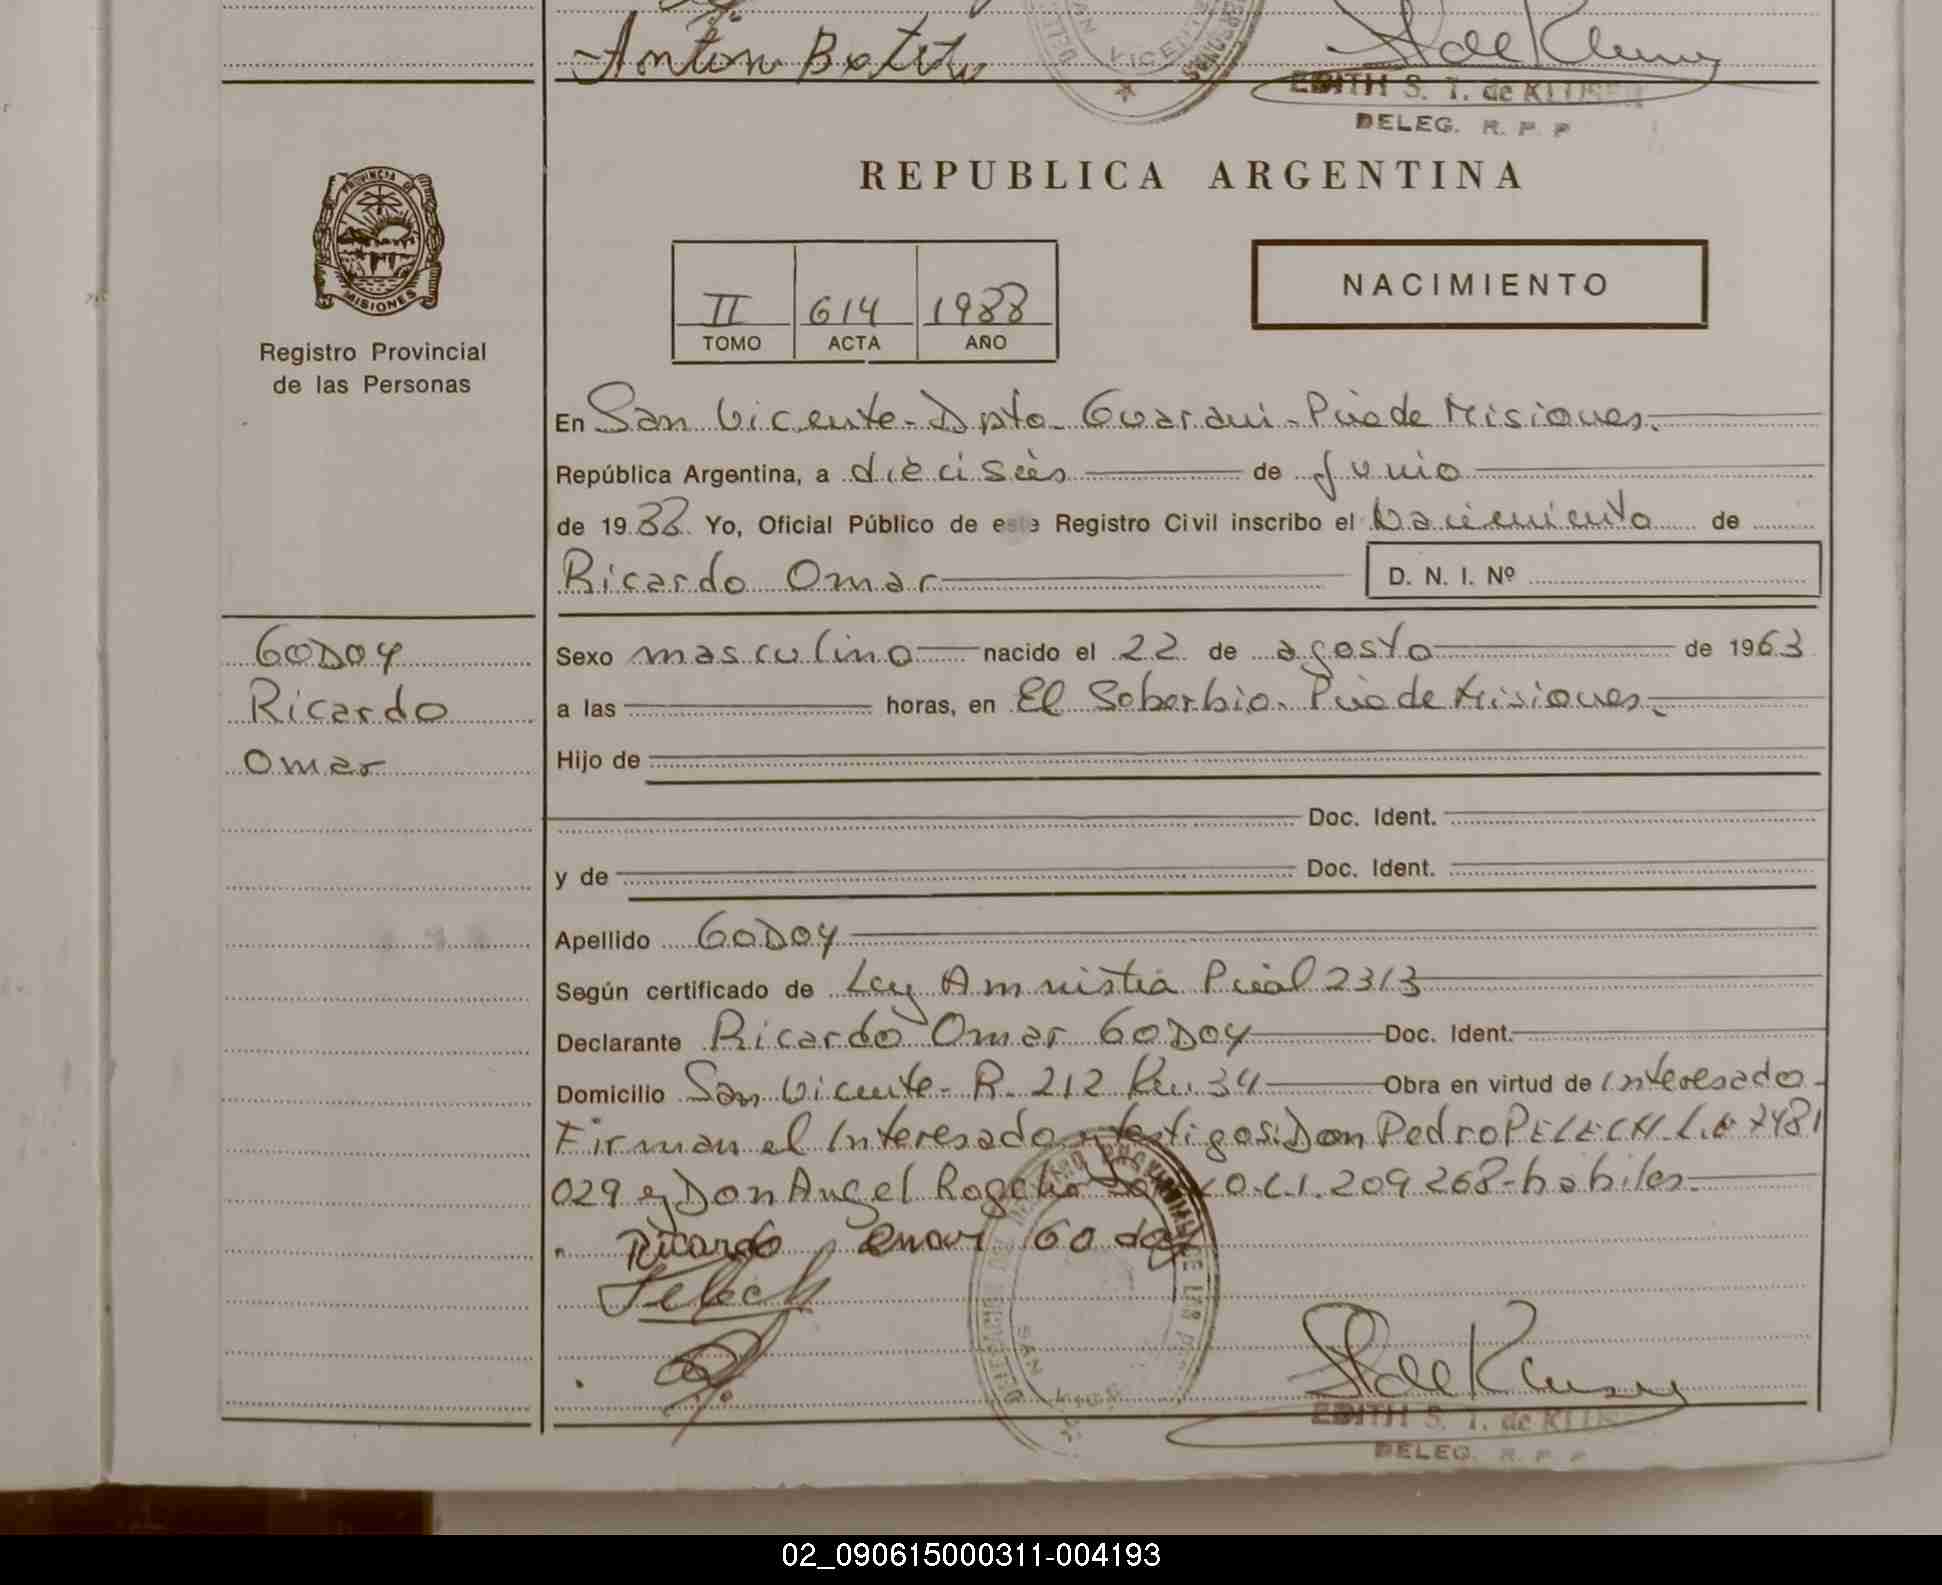 Anton Botitu
SAN VICENTE
EDITH S. T. de KLUSER
DELEG. R. P. P
REPUBLICA ARGENTINA
PROVINCIA DE MISIONES
Registro Provincial
de las Personas
II 614 1988
TOMO ACTA AÑO
NACIMIENTO
En San Vicente-Dpto. Guarani-Pcia de Misiones.
República Argentina, a dieciseis de Junio
de 1988 Yo, Oficial Público de este Registro Civil inscribo el Nacimiento de
Ricardo Omar D. N. I. Nº
GODOY
Ricardo
Omar
Sexo masculino nacido el 22 de agosto de 1963
a las horas, en El Soberbio. Pcia de Misiones.
Hijo de
Doc. Ident.
y de Doc. Ident.
Apellido GODOY
Según certificado de Ley Amnistia Pcial 2313
Declarante Ricardo Omar GODOY Doc. Ident.
Domicilio San Vicente-R. 212 Km. 34 Obra en virtud de Interesado-
Firman el Interesado y testigos: Don Pedro PELECH L.E 7481
029 y Don Angel Rogelio C.I. 209268-habiles.
Ricardo Omar Godoy
Pelech
SdeKluser
EDITH S. T. de KLUSER
DELEG. R. P. P
02_090615000311-004193